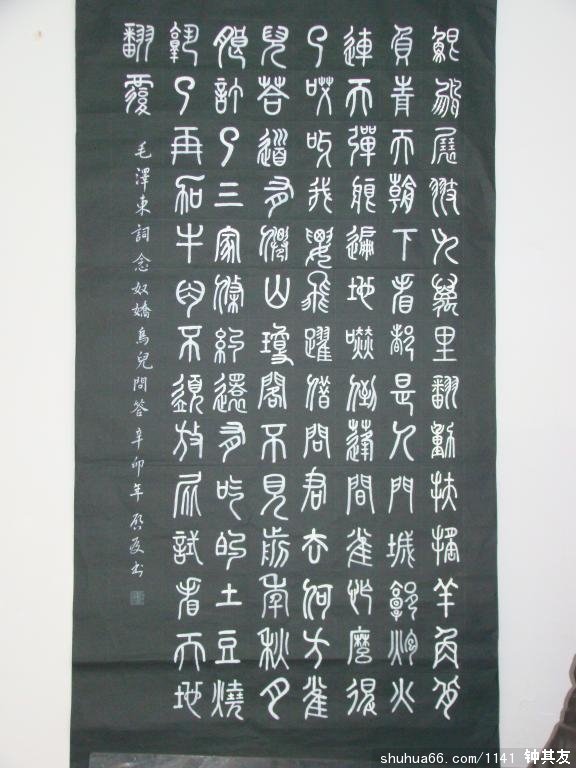 鯤鵬展翅九萬里翻動扶搖羊角背
負青天朝下看都是人間城郭炮火
連天彈痕遍地嚇倒蓬間雀怎麼得
了哎呀我要飛躍借問君去何方雀
兒答道有僊山瓊閣不見前年秋月
朗訂了三家條約還有吃的土豆燒
熟了再加牛肉不須放屁試看天地
翻覆
毛澤東詞念奴嬌鳥兒問答 辛卯年 書
shuhua66.com/1141 钟其友